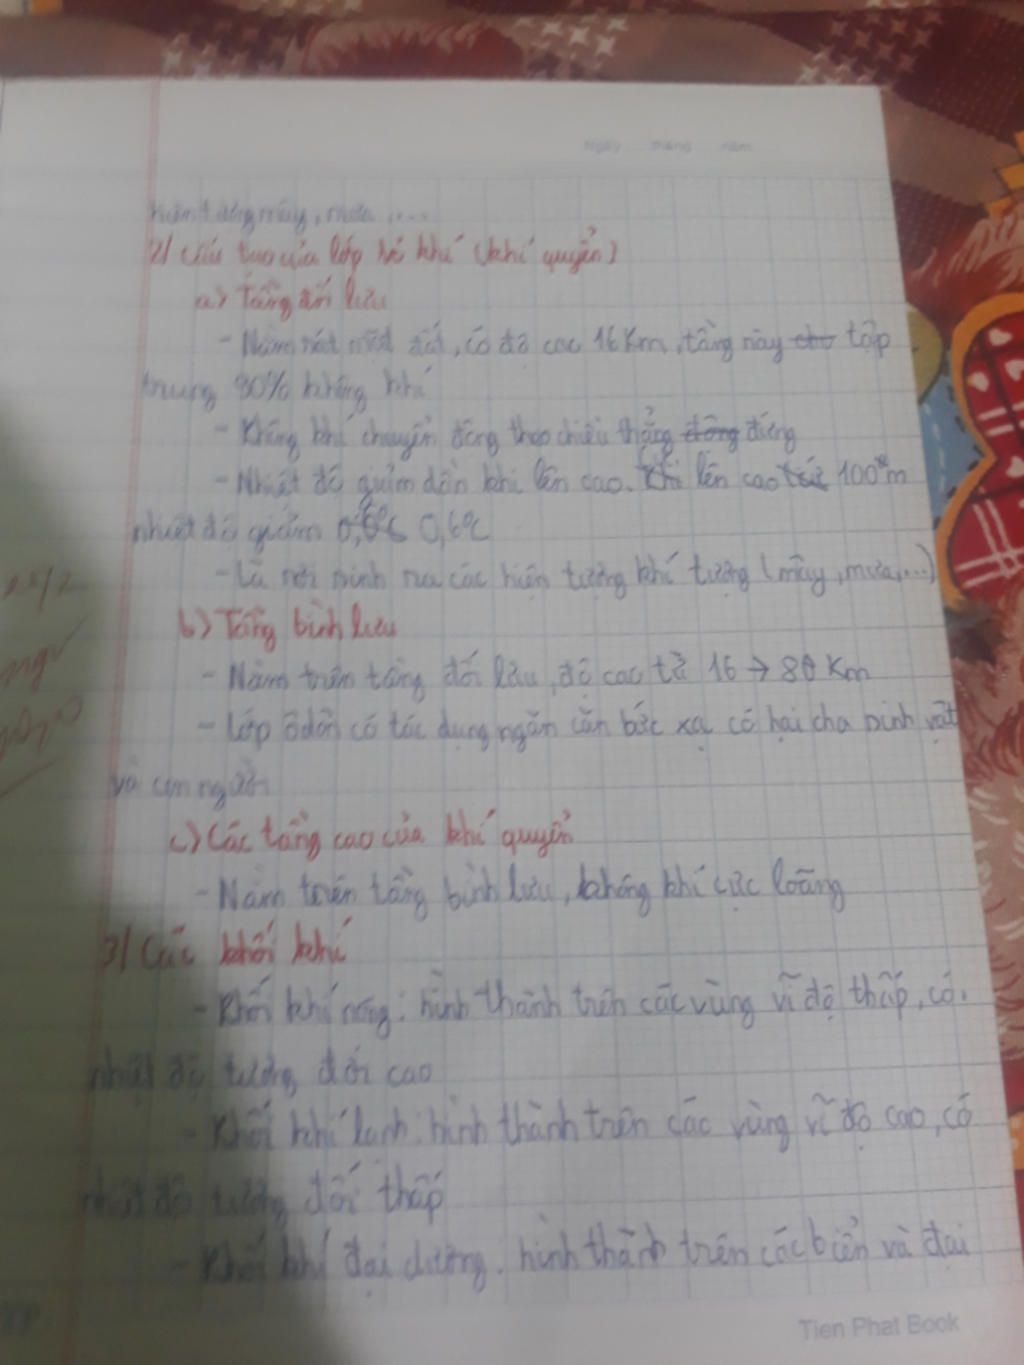 Ngày tháng năm
tượng mây, mưa ....
2/ Cấu tạo của lớp vỏ khí (khí quyển)
a) Tầng đối lưu
- Nằm sát mặt đất, có độ cao 16 Km, tầng này tập
trung 90% không khí
- Không khí chuyển động theo chiều thẳng đứng
- Nhiệt độ giảm dần khi lên cao. Khi lên cao 100m
nhiệt độ giảm 0,6°C
- Là nơi sinh ra các hiện tượng khí tượng (mây, mưa,...)
b) Tầng bình lưu
- Nằm trên tầng đối lưu, độ cao từ 16 → 80 Km
- Lớp ôdôn có tác dụng ngăn cản bức xạ có hại cho sinh vật
và con người
c) Các tầng cao của khí quyển
- Nằm trên tầng bình lưu, không khí cực loãng
3/ Các khối khí
- Khối khí nóng: hình thành trên các vùng vĩ độ thấp, có
nhiệt độ tương đối cao
- Khối khí lạnh: hình thành trên các vùng vĩ độ cao, có
nhiệt độ tương đối thấp
- Khối khí đại dương: hình thành trên các biển và đại
Tien Phat Book